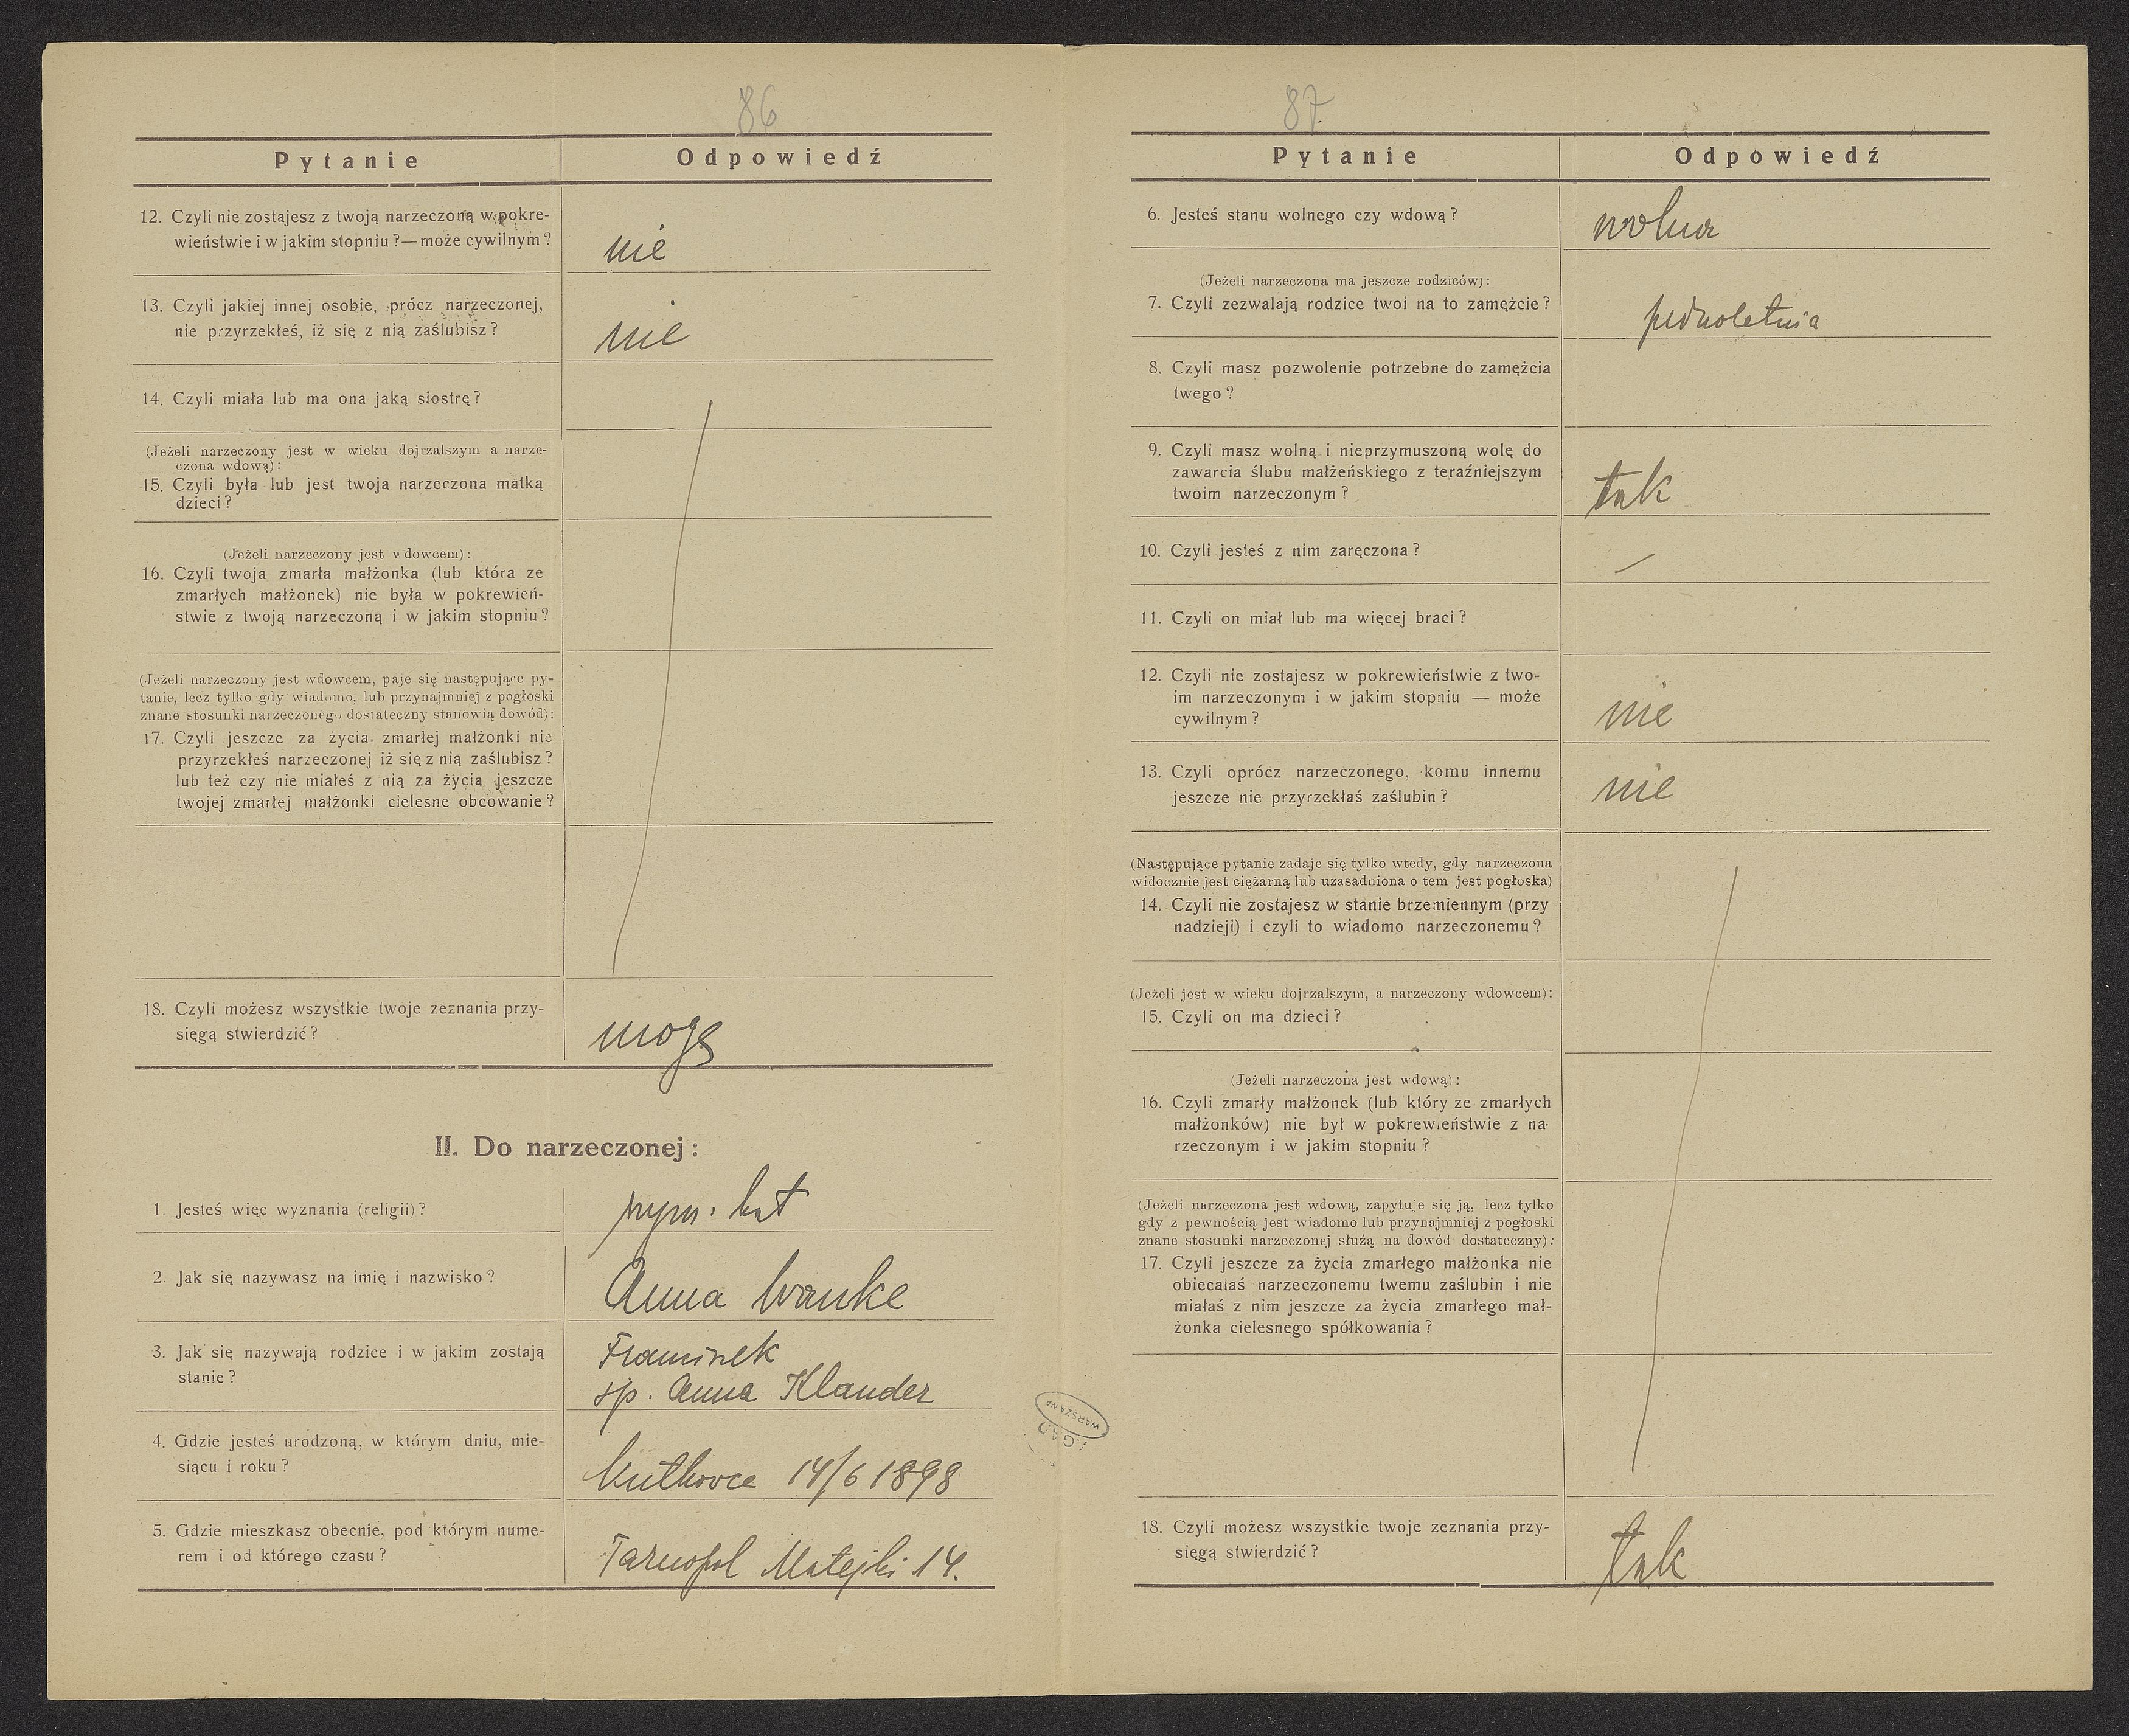 86
Pytanie
Odpowiedź
12. Czyli nie zostajesz z twoją narzeczoną w pokre-
wieństwie i w jakim stopniu?—może cywilnym?
nie
13. Czyli jakiej innej osobie, prócz narzeczonej,
nie przyrzekłeś, iż się z nią zaślubisz?
nie
14. Czyli miała lub ma ona jaką siostrę?
(Jeżeli narzeczony jest w wieku dojrzalszym a narze-
czona wdową):
15. Czyli była lub jest twoja narzeczona matką
dzieci?
(Jeżeli narzeczony jest wdowcem):
16. Czyli twoja zmarła małżonka (lub która ze
zmarłych małżonek) nie była w pokrewień-
stwie z twoją narzeczoną i w jakim stopniu?
(Jeżeli narzeczony jest wdowcem, paje się następujące py-
tanie, lecz tylko gdy wiadomo, lub przynajmniej z pogłoski
znane stosunki narzeczonego dostateczny stanowią dowód):
17. Czyli jeszcze za życia zmarłej małżonki nie
przyrzekłeś narzeczonej iż się z nią zaślubisz?
lub też czy nie miałeś z nią za życia jeszcze
twojej zmarłej małżonki cielesne obcowanie?
18. Czyli możesz wszystkie twoje zeznania przy-
sięgą stwierdzić?
mogę
II. Do narzeczonej:
1. Jesteś więc wyznania (religii)?
rzym. kat
2. Jak się nazywasz na imię i nazwisko?
Anna Wanke
3. Jak się nazywają rodzice i w jakim zostają
stanie?
Franciszek
sp. Anna Klander
4. Gdzie jesteś urodzoną, w którym dniu, mie-
siącu i roku?
14/6 1898
5. Gdzie mieszkasz obecnie, pod którym nume-
rem i od którego czasu?
Tarnopol Matejki 14.
87
Pytanie
Odpowiedź
6. Jesteś stanu wolnego czy wdową?
wolna
(Jeżeli narzeczona ma jeszcze rodziców):
7. Czyli zezwalają rodzice twoi na to zamężcie?
pełnoletnia
8. Czyli masz pozwolenie potrzebne do zamężcia
twego?
9. Czyli masz wolną i nieprzymuszoną wolę do
zawarcia ślubu małżeńskiego z teraźniejszym
twoim narzeczonym?
tak
10. Czyli jesteś z nim zaręczona?
—
11. Czyli on miał lub ma więcej braci?
12. Czyli nie zostajesz w pokrewieństwie z two-
im narzeczonym i w jakim stopniu — może
cywilnym?
nie
13. Czyli oprócz narzeczonego, komu innemu
jeszcze nie przyrzekłaś zaślubin?
nie
(Następujące pytanie zadaje się tylko wtedy, gdy narzeczona
widocznie jest ciężarną lub uzasadniona o tem jest pogłoska)
14. Czyli nie zostajesz w stanie brzemiennym (przy
nadzieji) i czyli to wiadomo narzeczonemu?
(Jeżeli jest w wieku dojrzalszym, a narzeczony wdowcem):
15. Czyli on ma dzieci?
(Jeżeli narzeczona jest wdową):
16. Czyli zmarły małżonek (lub który ze zmarłych
małżonków) nie był w pokrewieństwie z na-
rzeczonym i w jakim stopniu?
(Jeżeli narzeczona jest wdową, zapytuje się ją, lecz tylko
gdy z pewnością jest wiadomo lub przynajmniej z pogłoski
znane stosunki narzeczonej służą na dowód dostateczny):
17. Czyli jeszcze za życia zmarłego małżonka nie
obiecałaś narzeczonemu twemu zaślubin i nie
miałaś z nim jeszcze za życia zmarłego mał-
żonka cielesnego spółkowania?
18. Czyli możesz wszystkie twoje zeznania przy-
sięgą stwierdzić?
tak
WARSZAWA